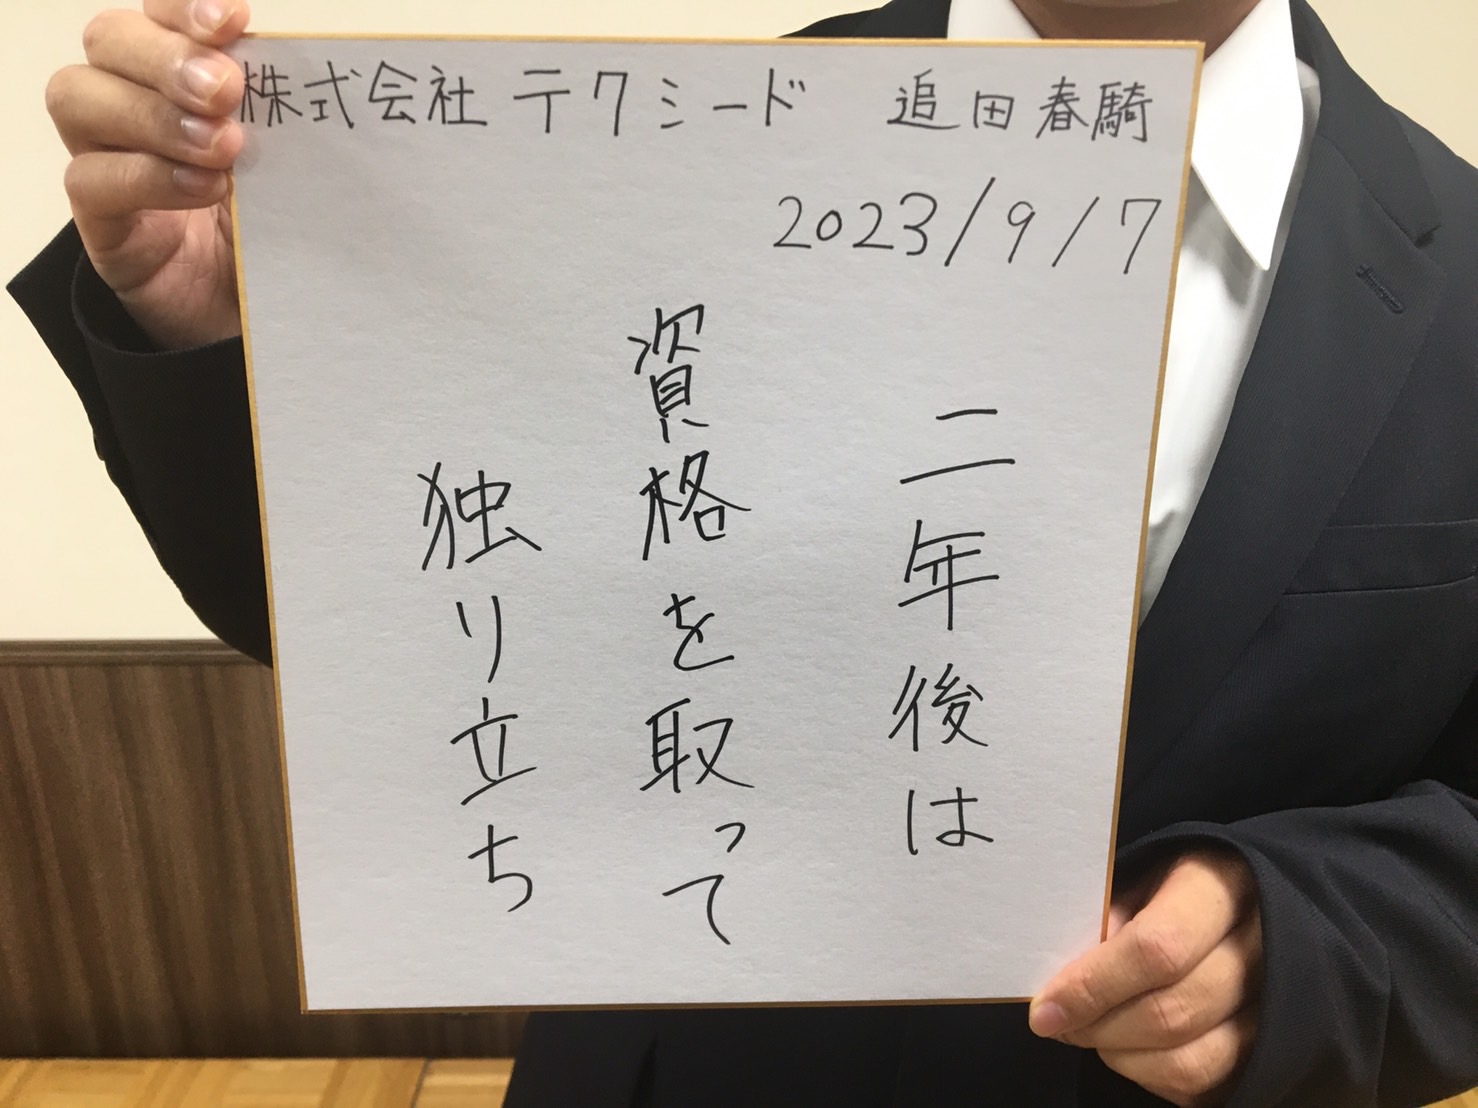 株式会社 テクシード 追田春騎
2023/9/7
二年後は
資格を取って
独り立ち